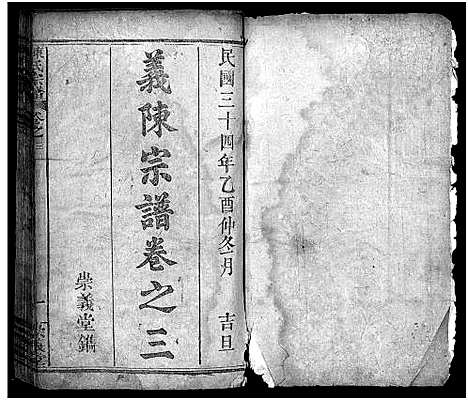 民國三十四年乙酉仲冬月 吉旦
義陳宗譜卷之三
崇義堂鐫
陳氏宗譜 卷之三
一